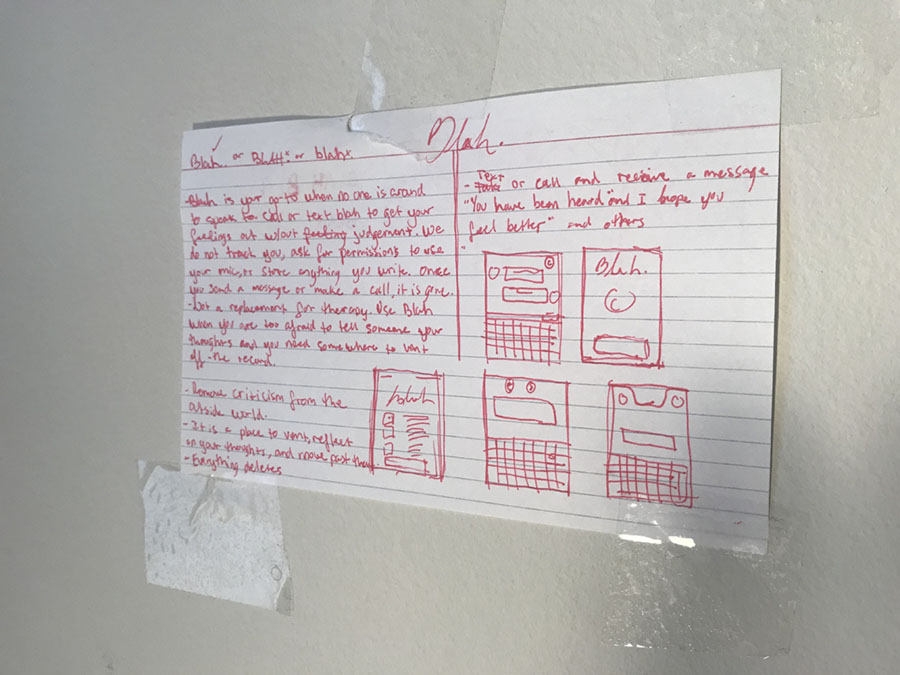 Blah.
Blah. or BLAH* or blah*
-Blah is your go-to when no one is around
to speak to. Call or text blah to get your
feelings out w/out feeling judgement. We
do not track you, ask for permissions to use
your mic, or store anything you write. Once
you send a message or make a call, it is gone.
-Not a replacement for therapy. Use Blah
when you are too afraid to tell someone your
thoughts and you need somewhere to vent
off the record.
-Remove criticism from the
outside world.
-It is a place to vent, reflect
on your thoughts, and move past them.
-Everything deletes
-Text or call and receive a message
"You have been heard" and I hope you
feel better" and others
Blah.
blah